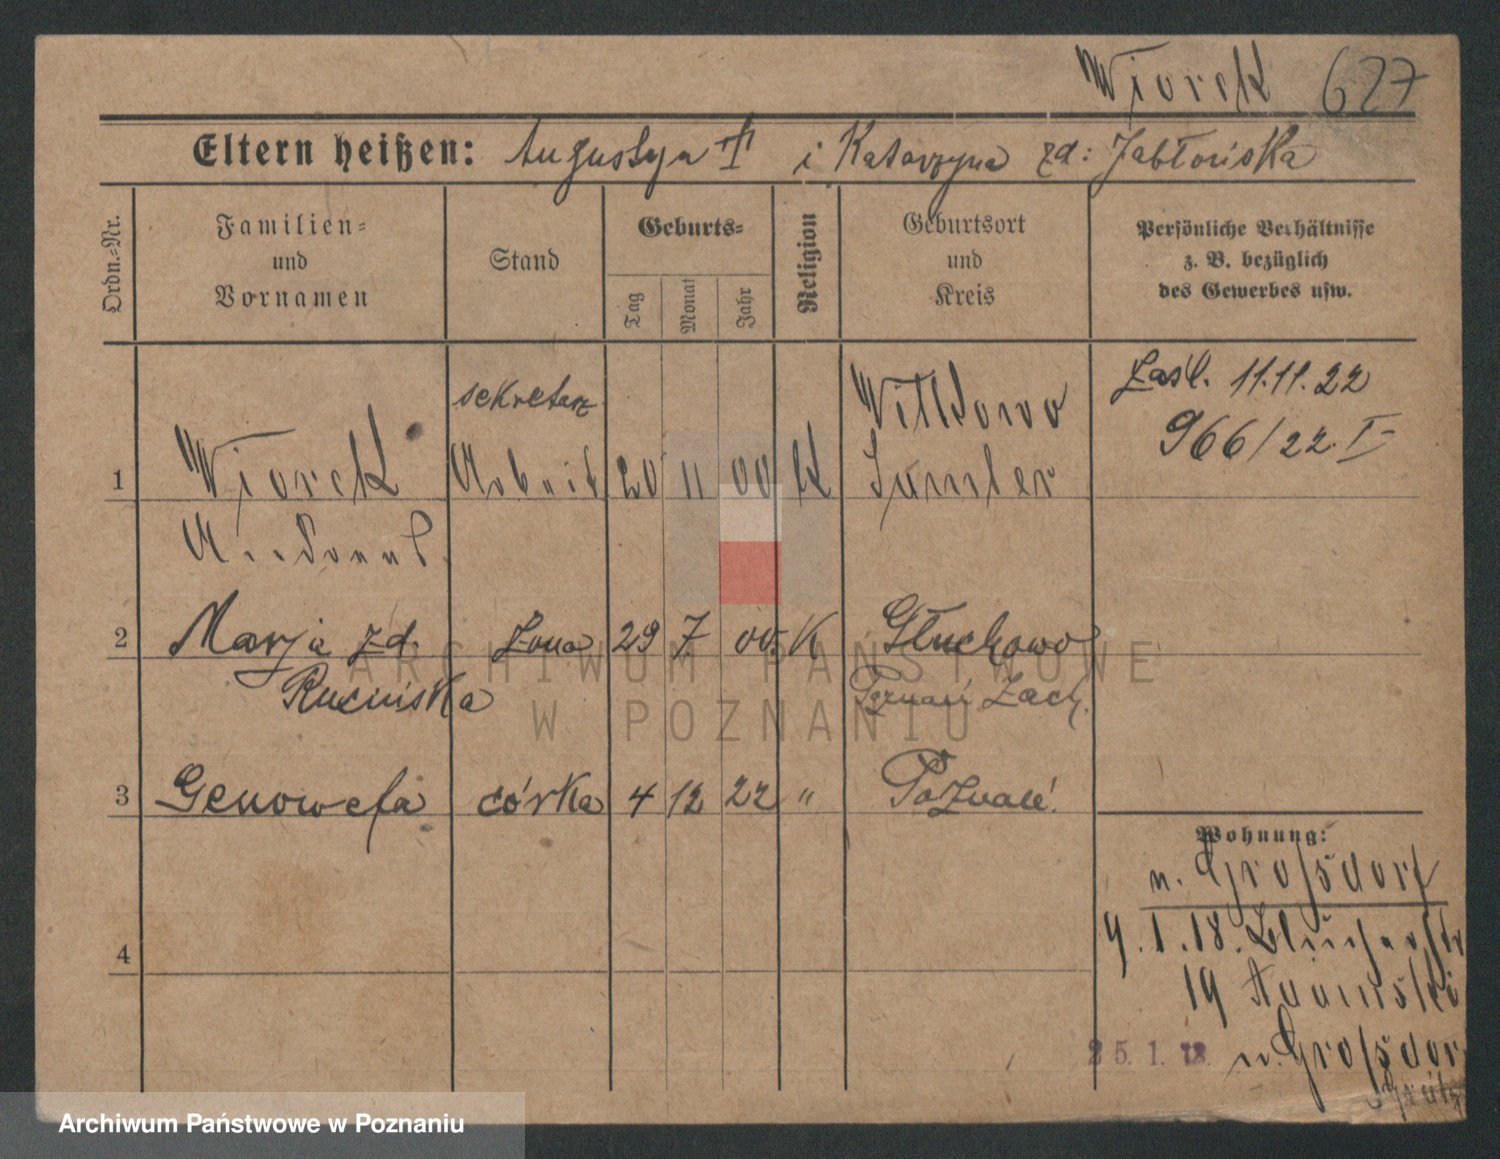 Wiorek 627
Eltern heißen: Augustyn i Katarzyna zd: Jabłońska
Ordn.=Nr.
Familien=
und
Vornamen
Stand
Geburts=
Tag
Monat
Jahr
Religion
Geburtsort
und
Kreis
Persönliche Verhältnisse
z. B. bezüglich
des Gewerbes usw.
sekretarz
Witkowo
Zasl. 11.11.22
966/22 I
1 Wiorek Arbeit 20 11 00 K Samter
2 Marja zd. Żona 29 7 00. K Głuchowo
Rucińska Poznań Zach.
3 Genowefa córka 4 12 22 " Poznań
Wohnung:
n. Großdorf
4
9.1.18. Blücherstr
19 Adamski
25. 1. 18. n. Großdor
ARCHIWUM PAŃSTWOWE
W POZNANIU
Archiwum Państwowe w Poznaniu